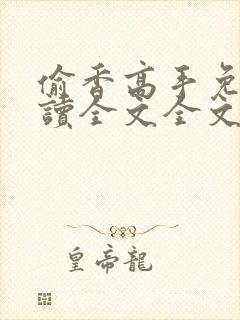 偷香高手免
讀全文全文
皇帝龍